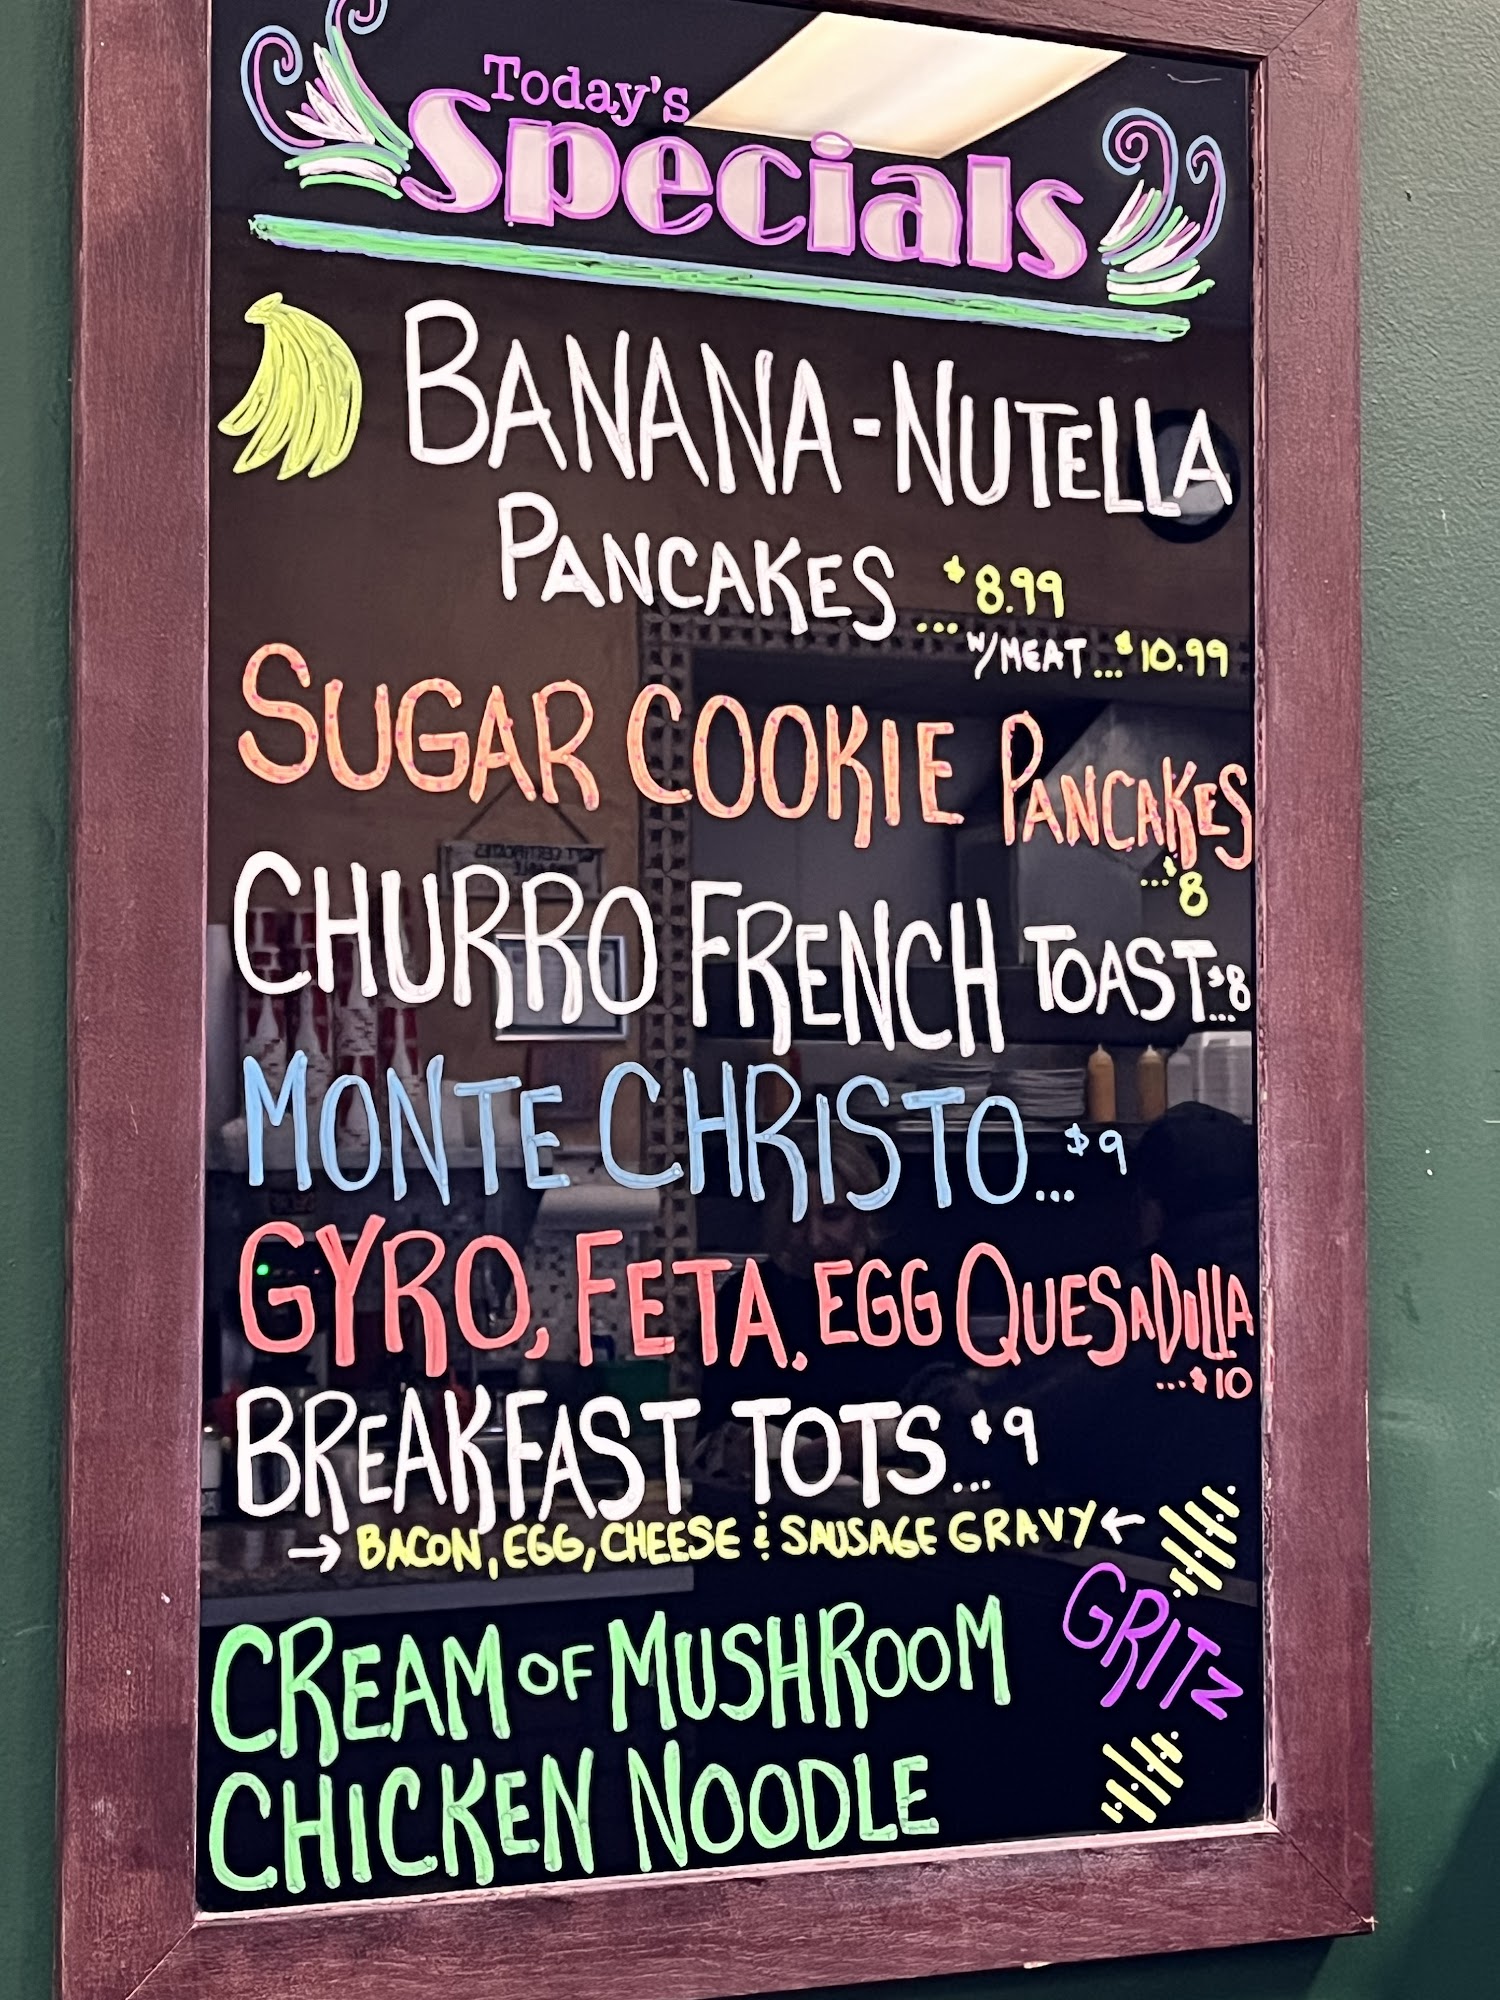 Today's
Specials
BANANA-NUTELLA
PANCAKES ... $8.99
W/MEAT... $10.99
SUGAR COOKIE PANCAKES
... $8
CHURRO FRENCH TOAST... $8
MONTE CHRISTO... $9
GYRO, FETA, EGG QUESADILLA
... $10
BREAKFAST TOTS... $9
→ BACON, EGG, CHEESE & SAUSAGE GRAVY ←
CREAM OF MUSHROOM
CHICKEN NOODLE
GRITZ